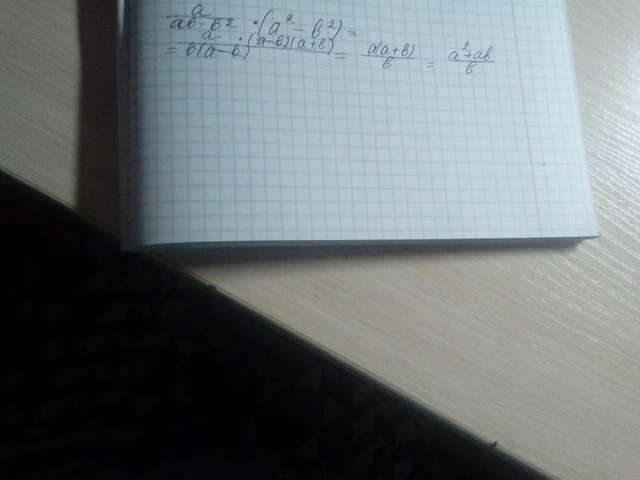 a/(ab-b²) · (a² - b²) =
= a/(b(a-b)) · (a-b)(a+b) = a(a+b)/b = (a²+ab)/b